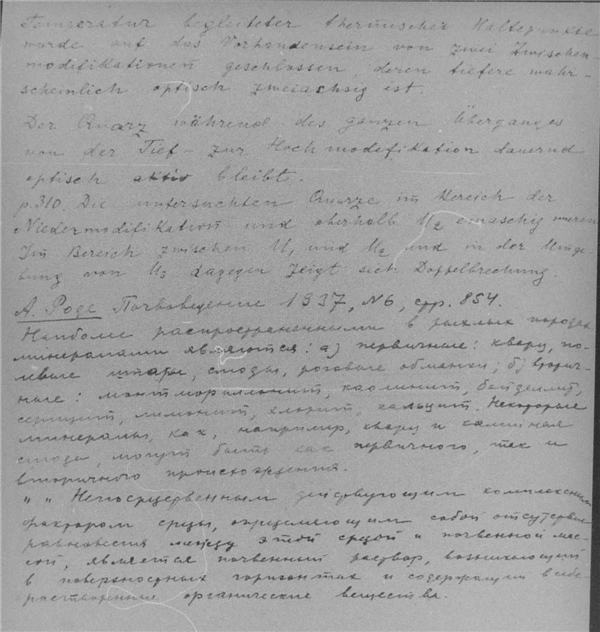 Temperatur begleiteter thermischer Haltepunkte
wurde auf das Vorhandensein von zwei Zwischen-
modifikationen geschlossen, deren tiefere wahr-
scheinlich optisch zweiachsig ist.
Der Quarz während des ganzen Überganges
von der Tief- zur Hochmodifikation dauernd
optisch aktiv bleibt.
p.310. Die untersuchten Quarze im Bereich der
Niedermodifikation und oberhalb U₂ einachsig waren
Im Bereich zwischen U₁ und U₂ und in der Umge-
bung von U₃ dagegen zeigt sich Doppelbrechung.
А. Роде Почвоведение 1937, №6, стр. 854.
Наиболее распространенными в рыхлых породах
минералами являются: а) первичные: кварц, по-
левые шпаты, слюды, роговые обманки; б) вторич-
ные: монтмориллонит, каолинит, бейделлит,
серицит, лимонит, хлорит, кальцит. Некоторые
минералы, как, например, кварц и калийная
слюда, могут быть как первичного, так и
вторичного происхождения.
" " Непосредственным действующим комплексным
фактором среды, определяющим собой отсутствие
равновесия между этой средой и почвенной мас-
сой, является почвенный раствор, возникающий
в поверхностных горизонтах и содержащий в себе
растворенные органические вещества.